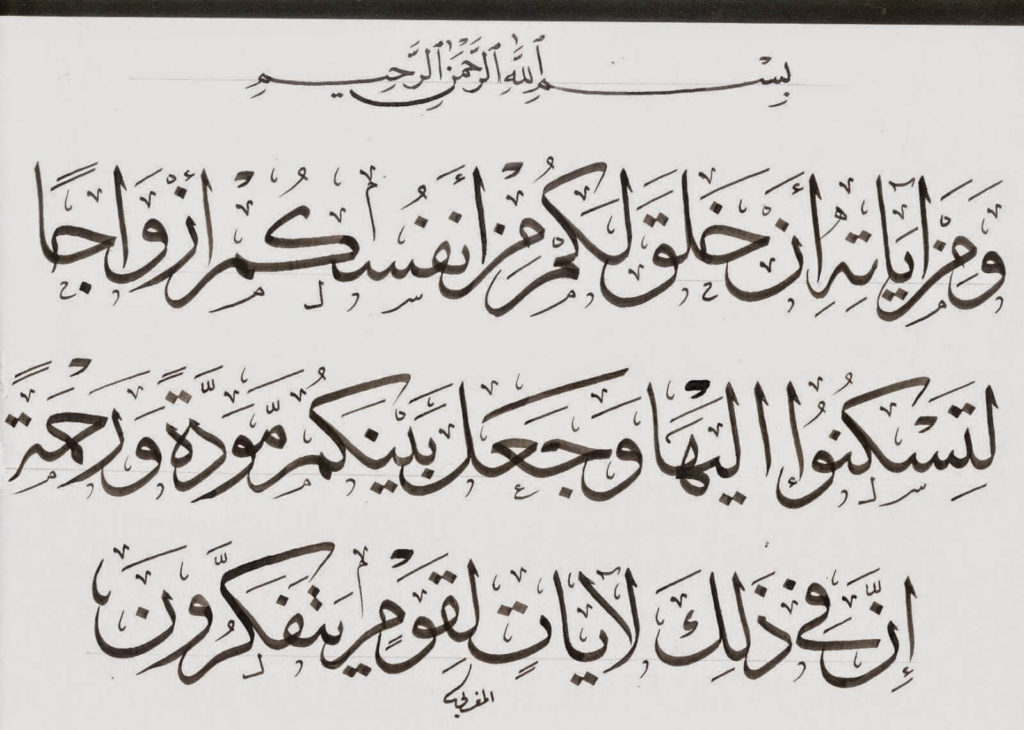 بِسْمِ ٱللَّهِ ٱلرَّحْمَٰنِ ٱلرَّحِيمِ
وَمِنْ آيَاتِهِ أَنْ خَلَقَ لَكُمْ مِنْ أَنفُسِكُمْ أَزْوَاجًا
لِتَسْكُنُوا إِلَيْهَا وَجَعَلَ بَيْنَكُمْ مَّوَدَّةً وَرَحْمَةً
إِنَّ فِي ذَلِكَ لَآيَاتٍ لِقَوْمٍ يَتَفَكَّرُونَ